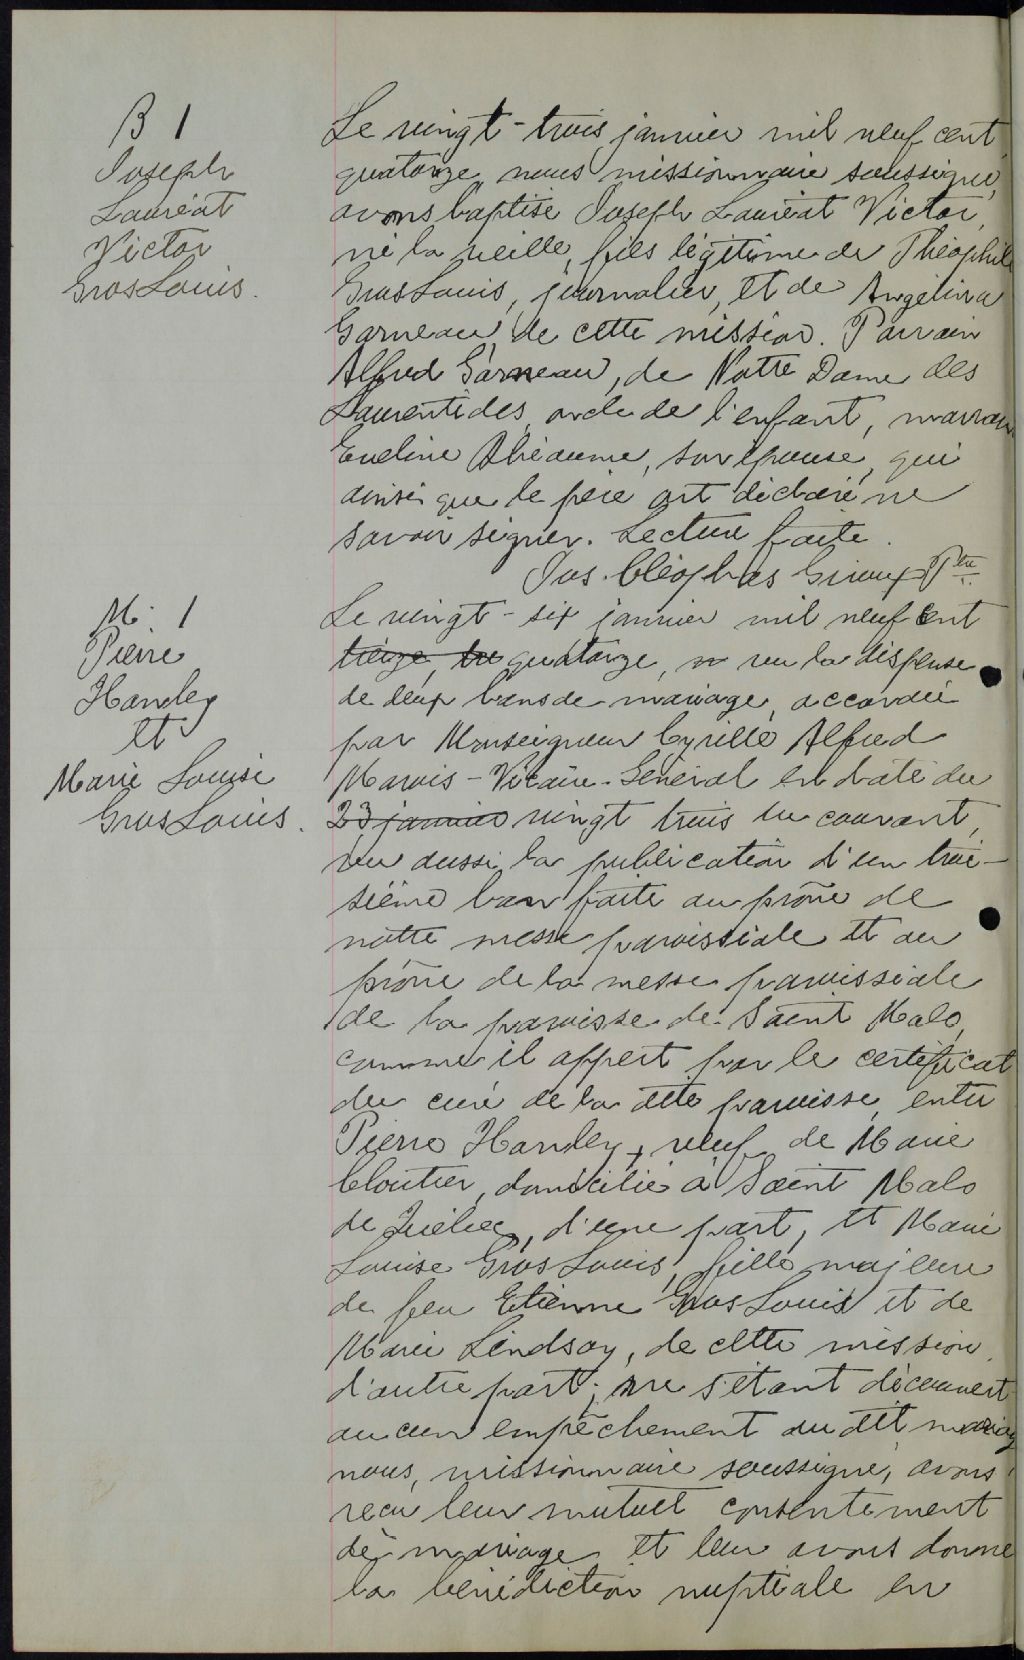 B 1
Joseph
Lauréat
Victor
GrosLouis.
Le vingt-trois janvier mil neuf cent
quatorze, nous missionnaire soussigné,
avons baptisé Joseph Lauréat Victor,
né la veille, fils légitime de Théophile
GrosLouis, journalier, et de Angelina
Garneau, de cette mission. Parrain
Alfred Garneau, de Notre Dame des
Laurentides, oncle de l'enfant, marraine
Eveline Rhéaume, son épouse, qui
ainsi que le père ont déclaré ne
savoir signer. Lecture faite.
Jos. Cléophas Giroux Ptre
M. 1
Pierre
Handley
et
Marie Louise
GrosLouis.
Le vingt-six janvier mil neuf cent
treize, quatorze, vu la dispense
de deux bans de mariage, accordée
par Monseigneur Cyrille Alfred
Marois-Vicaire-Général en date du
23 janvier vingt trois du courant,
vu aussi la publication d'un troi-
sième ban faite au prône de
notre messe paroissiale et au
prône de la messe paroissiale
de la paroisse de Saint Malo,
comme il appert par le certificat
du curé de la dite paroisse, entre
Pierre Handley, veuf de Marie
Cloutier, domicilié à Saint Malo
de Québec, d'une part, et Marie
Louise GrosLouis, fille majeure
de feu Etienne GrosLouis et de
Marie Lindsay, de cette mission
d'autre part; ne s'étant découvert
aucun empêchement au dit mariage
nous, missionnaire soussigné, avons
reçu leur mutuel consentement
de mariage et leur avons donné
la bénédiction nuptiale en